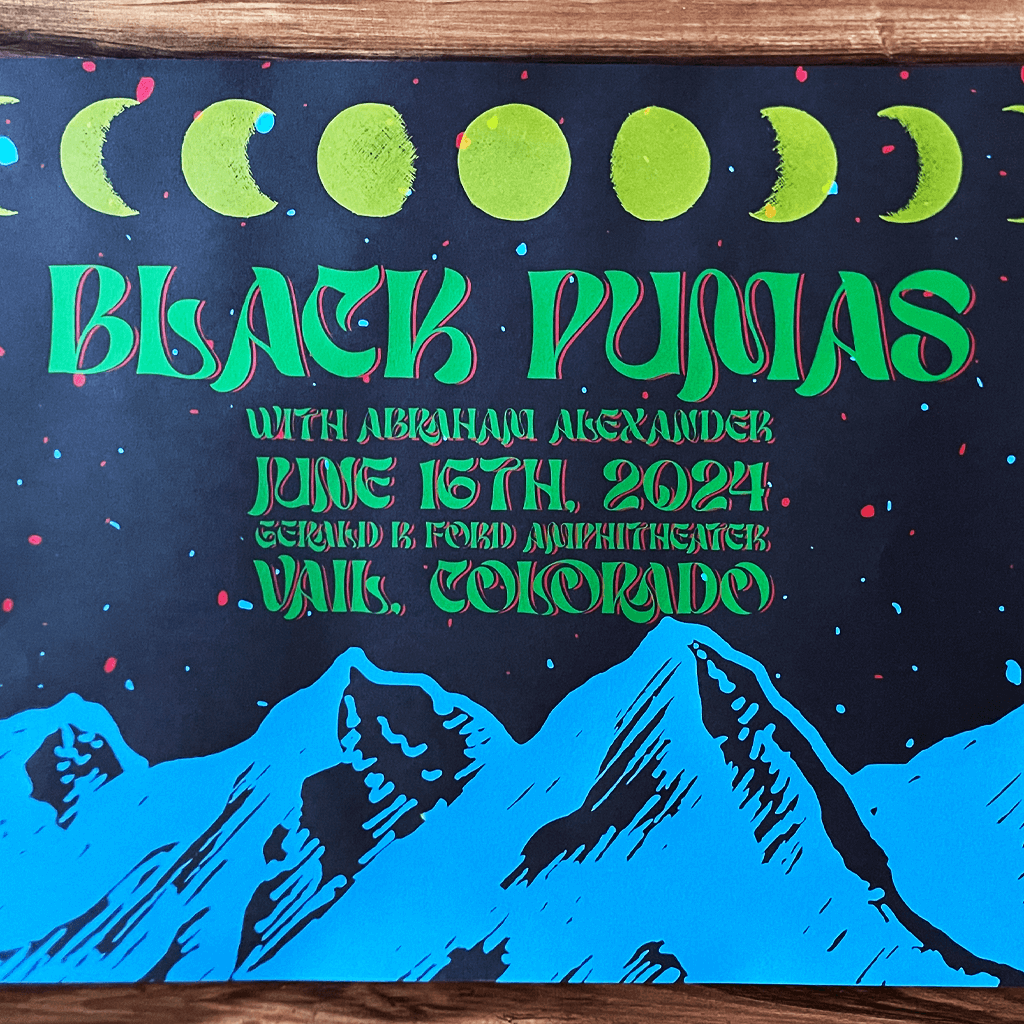 BLACK PUMAS
WITH ABRAHAM ALEXANDER
JUNE 16TH, 2024
GERALD R FORD AMPHITHEATER
VAIL, COLORADO